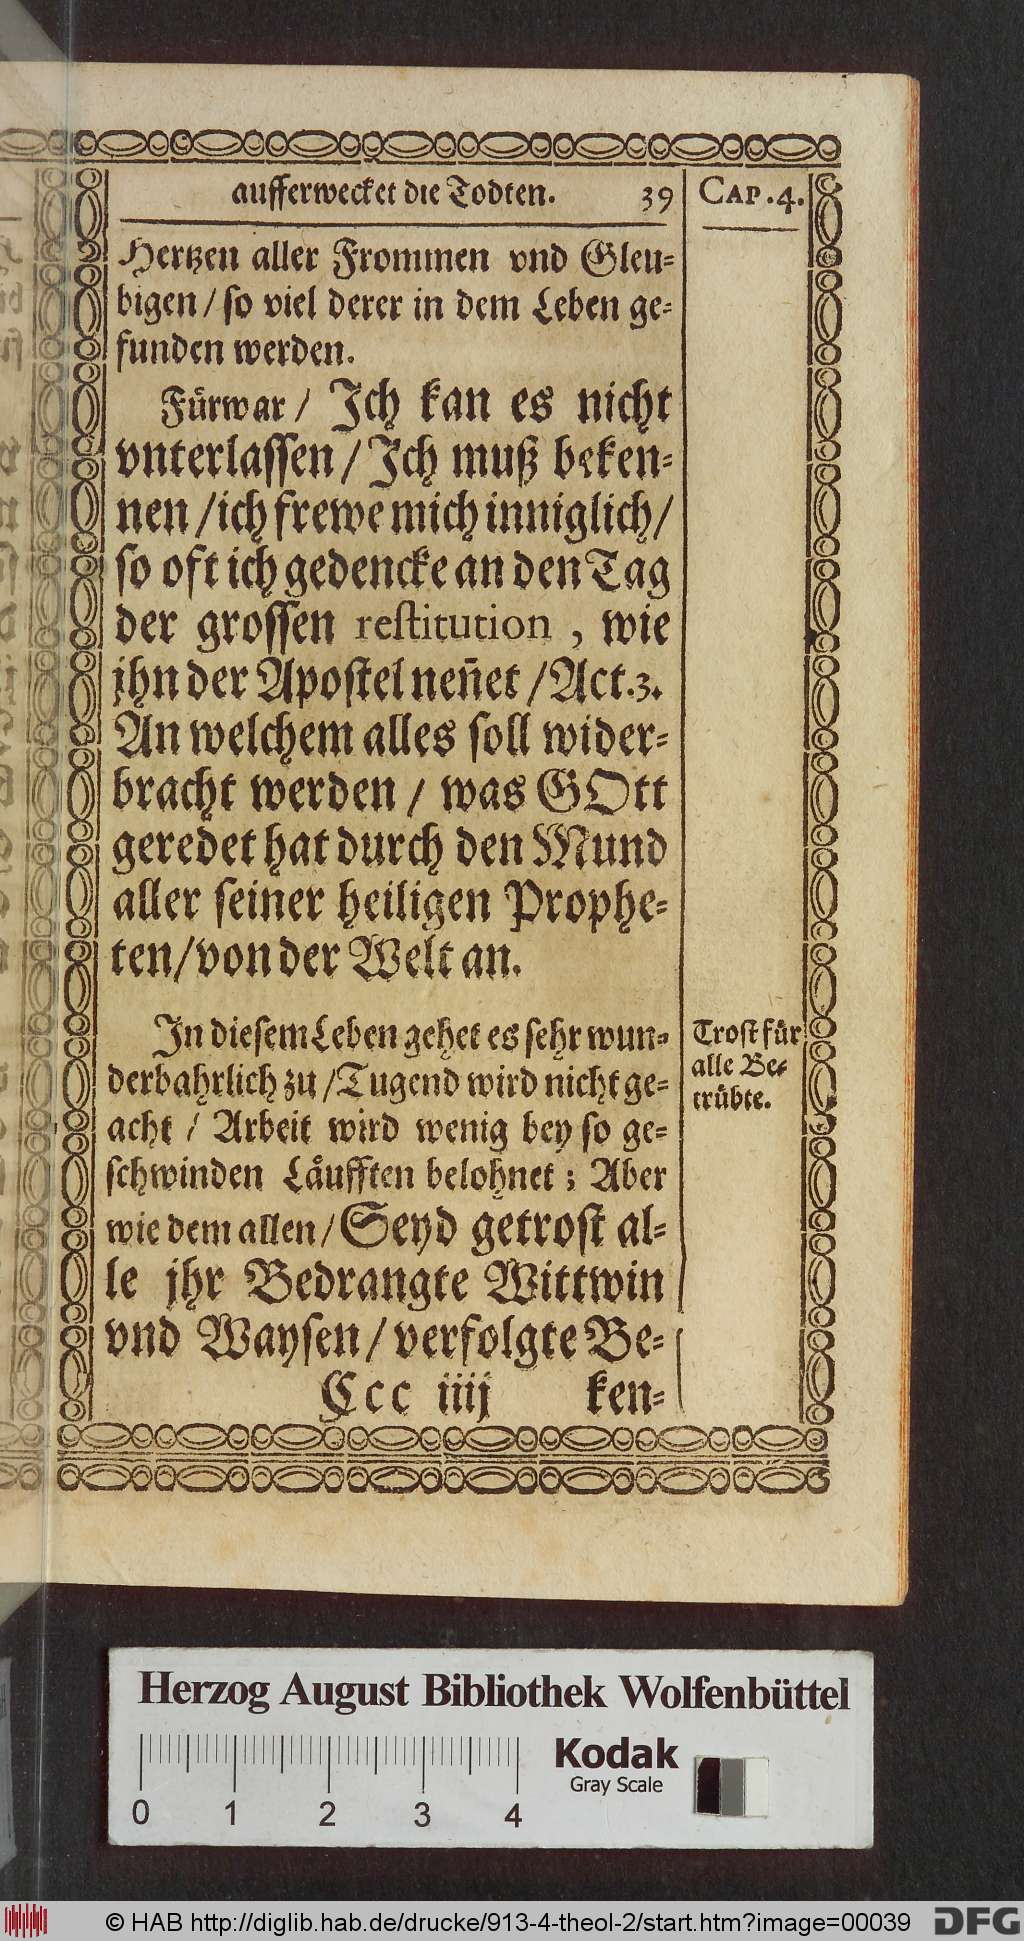 aufferwecket die Todten. 39 CAP.4.
Hertzen aller Frommen vnd Gleu-
bigen / so viel derer in dem Leben ge-
funden werden.
Fürwar / Ich kan es nicht
vnterlassen / Ich muß beken-
nen / ich frewe mich inniglich /
so oft ich gedencke an den Tag
der grossen restitution , wie
jhn der Apostel nen̄et / Act.3.
An welchem alles soll wider-
bracht werden / was GOtt
geredet hat durch den Mund
aller seiner heiligen Prophe-
ten / von der Welt an.
In diesem Leben gehet es sehr wun-
derbahrlich zu / Tugend wird nicht ge-
acht / Arbeit wird wenig bey so ge-
schwinden Läufften belohnet ; Aber
wie dem allen / Seyd getrost al-
le jhr Bedrangte Wittwin
vnd Waysen / verfolgte Be-
Ccc iiij ken-
Trost für
alle Be-
trübte.
Herzog August Bibliothek Wolfenbüttel
0 1 2 3 4
Kodak
Gray Scale
© HAB http://diglib.hab.de/drucke/913-4-theol-2/start.htm?image=00039
DFG